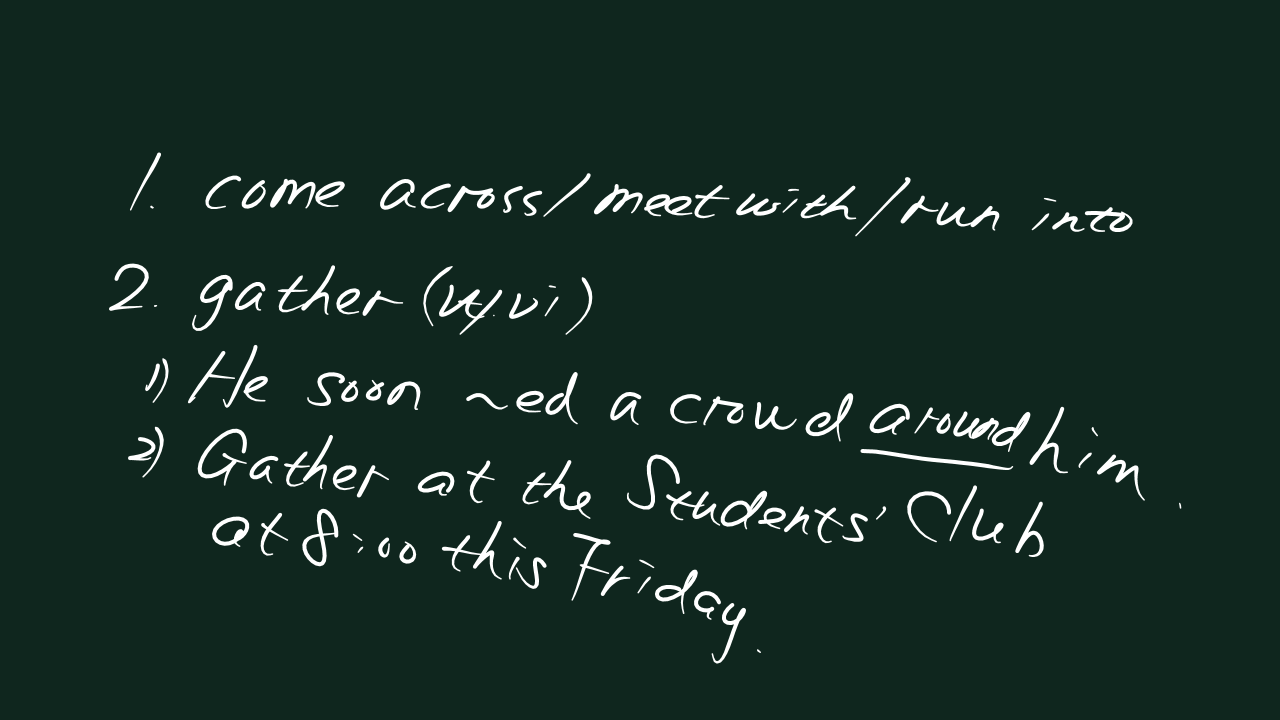 1. come across/meet with/run into
2. gather (vt/vi)
1) He soon ~ed a crowd around him.
2) Gather at the Students' Club
at 8:00 this Friday.